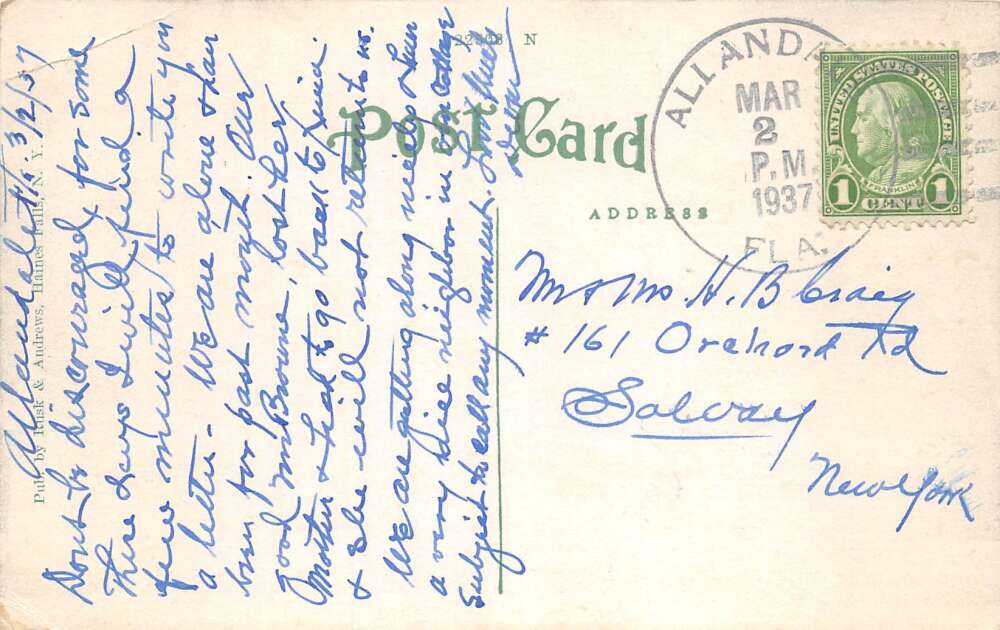 Allandale Fla. 3/2/37
Dont be discouraged, for some
there days I will find a
few minutes to write you
a letter - We are alone & have
been for past month. Our
good Mrs Browne, lost her
Mother & had to go back to
& she will not return to us.
We are getting along nicely & have
a very nice neighbor in by a cottage
subject to call any moment.
22398 N
Post Card
ADDRESS
Pub. by Rusk & Andrews, Haines Falls, N. Y.
ALLANDALE
MAR
2
P.M.
1937
FLA.
UNITED STATES POSTAGE
FRANKLIN
1 CENT 1
Mr & Mrs. H. B Craig
# 161 Orchard Rd
Solvay
New York